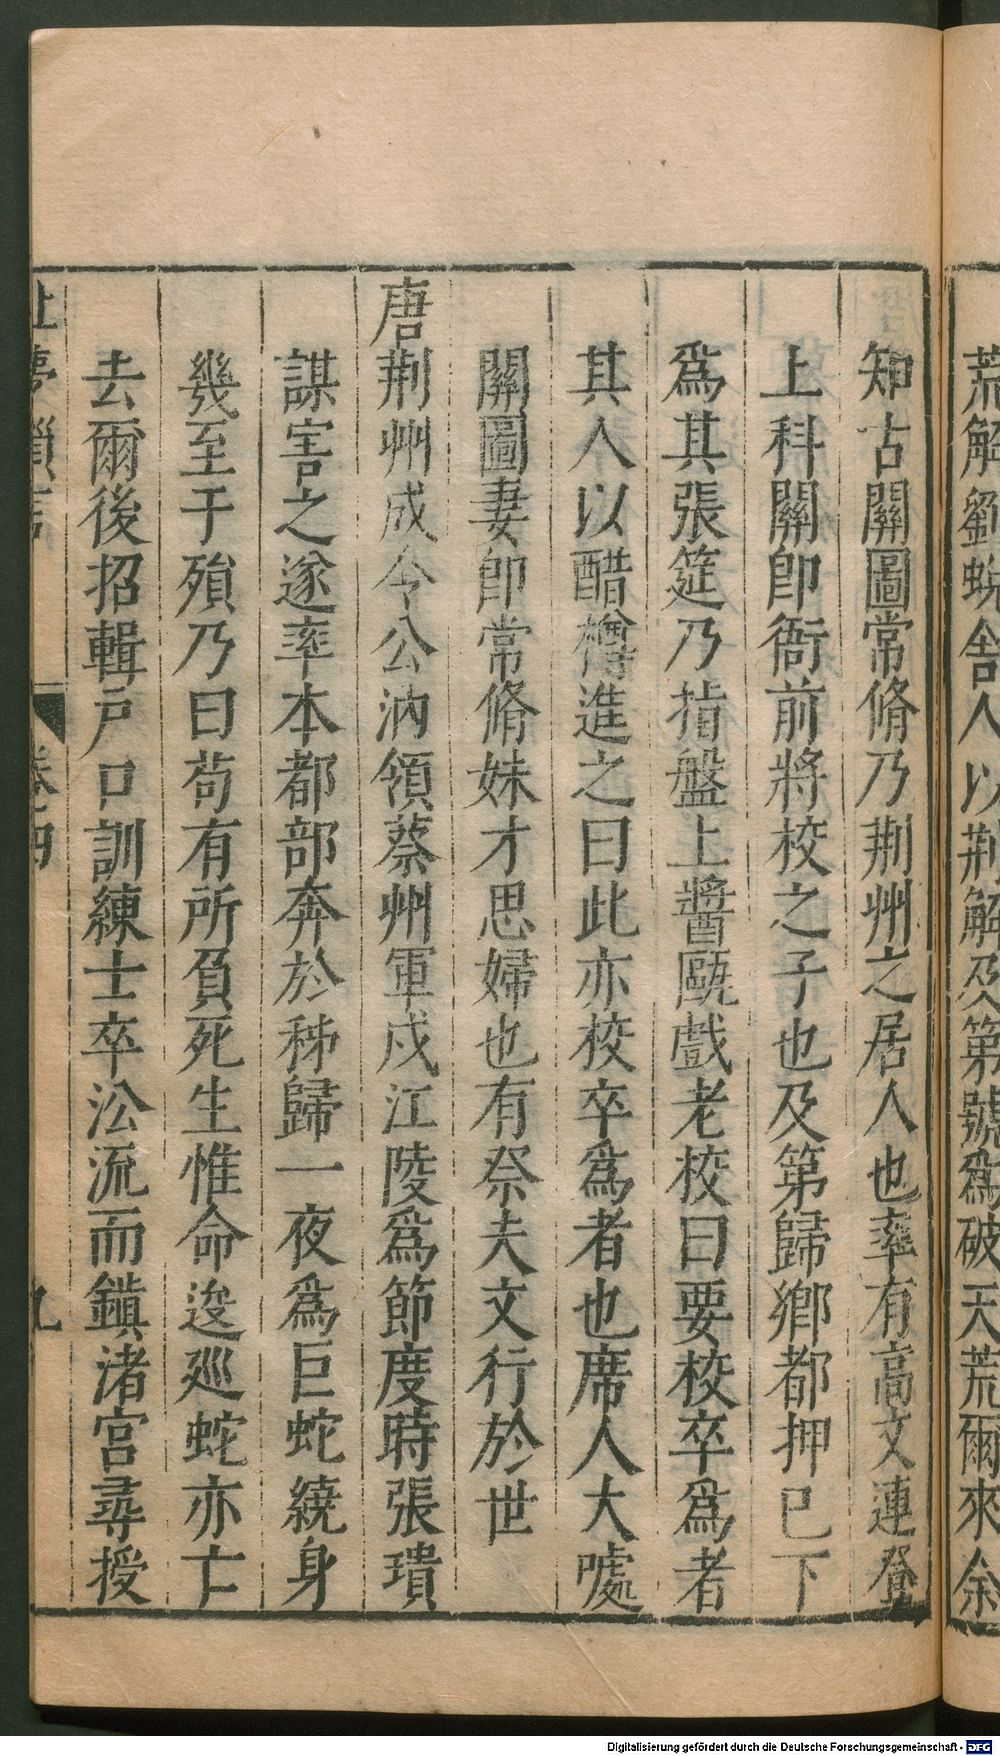 荒解劉蛻舍人以荆解及第號爲破天荒爾來余
知古關圖常脩乃荆州之居人也率有高文連登
上科關卽衙前將校之子也及第歸鄉都押已下
爲其張筵乃指盤上醬甌戲老校曰要校卒爲者
其人以醋樽進之曰此亦校卒爲者也席人大噱
關圖妻卽常脩妹才思婦也有祭夫文行於世
唐荆州成令公汭領蔡州軍戍江陵爲節度時張瓌
謀害之遂率本都部奔於秭歸一夜爲巨蛇繞身
幾至于殞乃曰苟有所負死生惟命逡廵蛇亦亡
去爾後招輯戸口訓練士卒沿流而鎭渚宮尋授
夢瑣言
卷四
九
Digitalisierung gefördert durch die Deutsche Forschungsgemeinschaft - DFG